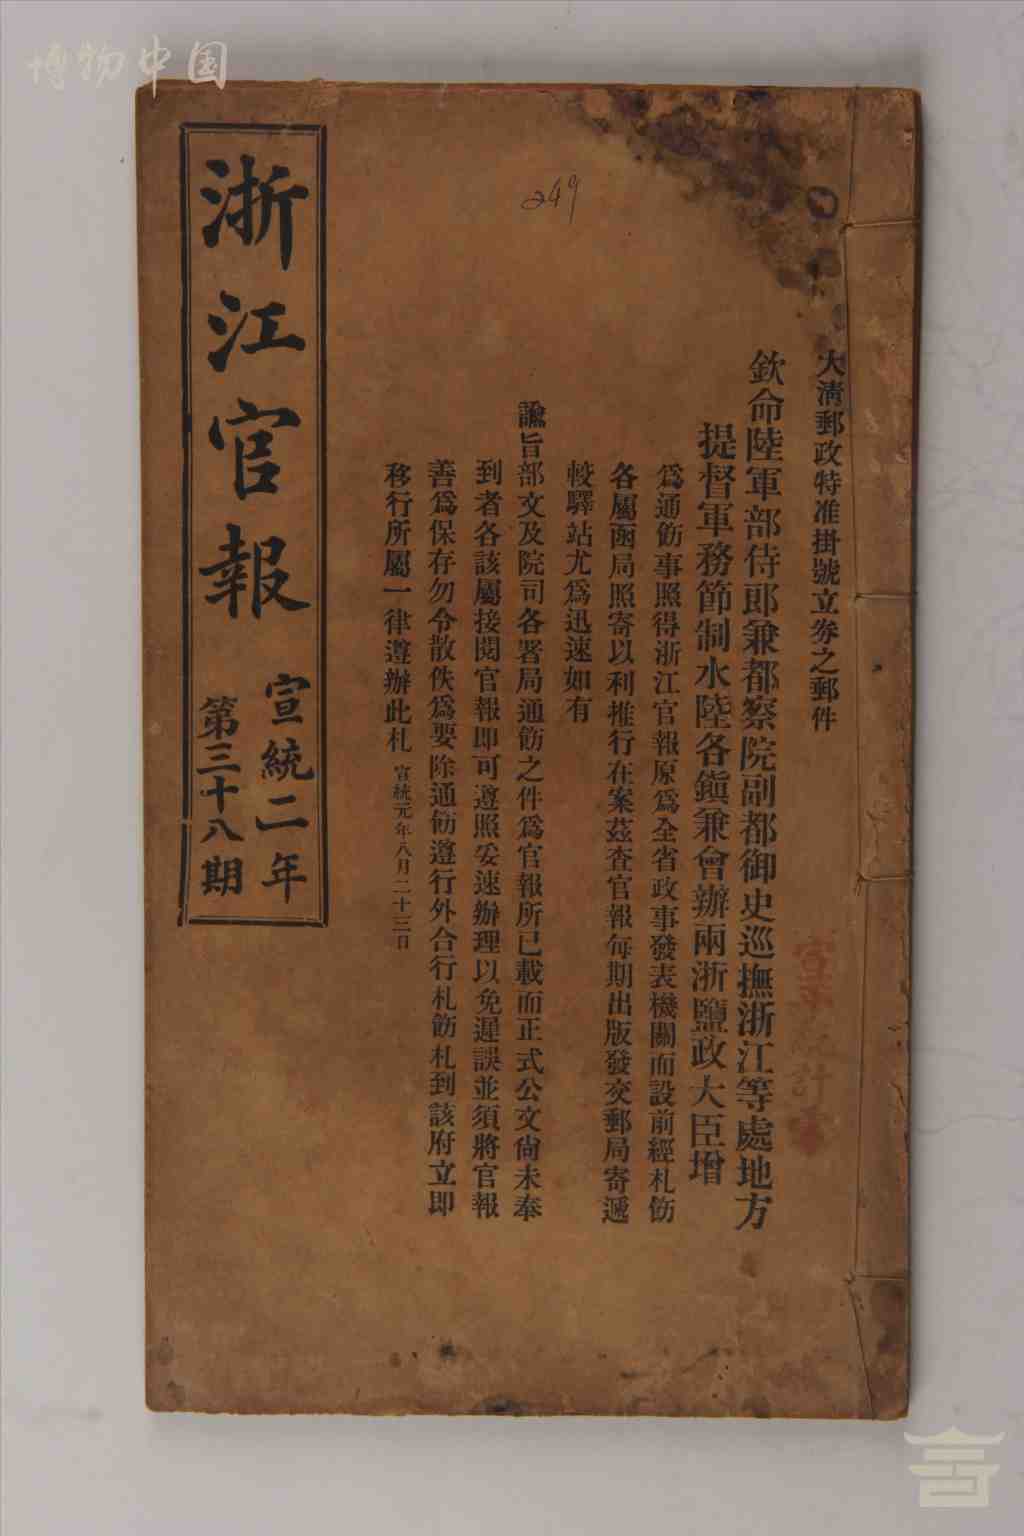 博物中国
249
大清郵政特准掛號立券之郵件
欽命陸軍部侍郎兼都察院副都御史巡撫浙江等處地方
提督軍務節制水陸各鎭兼會辦兩浙鹽政大臣增
爲通飭事照得浙江官報原爲全省政事發表機關而設前經札飭
各屬函局照寄以利推行在案茲查官報每期出版發交郵局寄遞
較驛站尤爲迅速如有
諭旨部文及院司各署局通飭之件爲官報所已載而正式公文尙未奉
到者各該屬接閱官報即可遵照妥速辦理以免遲誤並須將官報
善爲保存勿令散佚爲要除通飭遵行外合行札飭札到該府立即
移行所屬一律遵辦此札 宣統元年八月二十三日
浙江官報
宣統二年
第三十八期